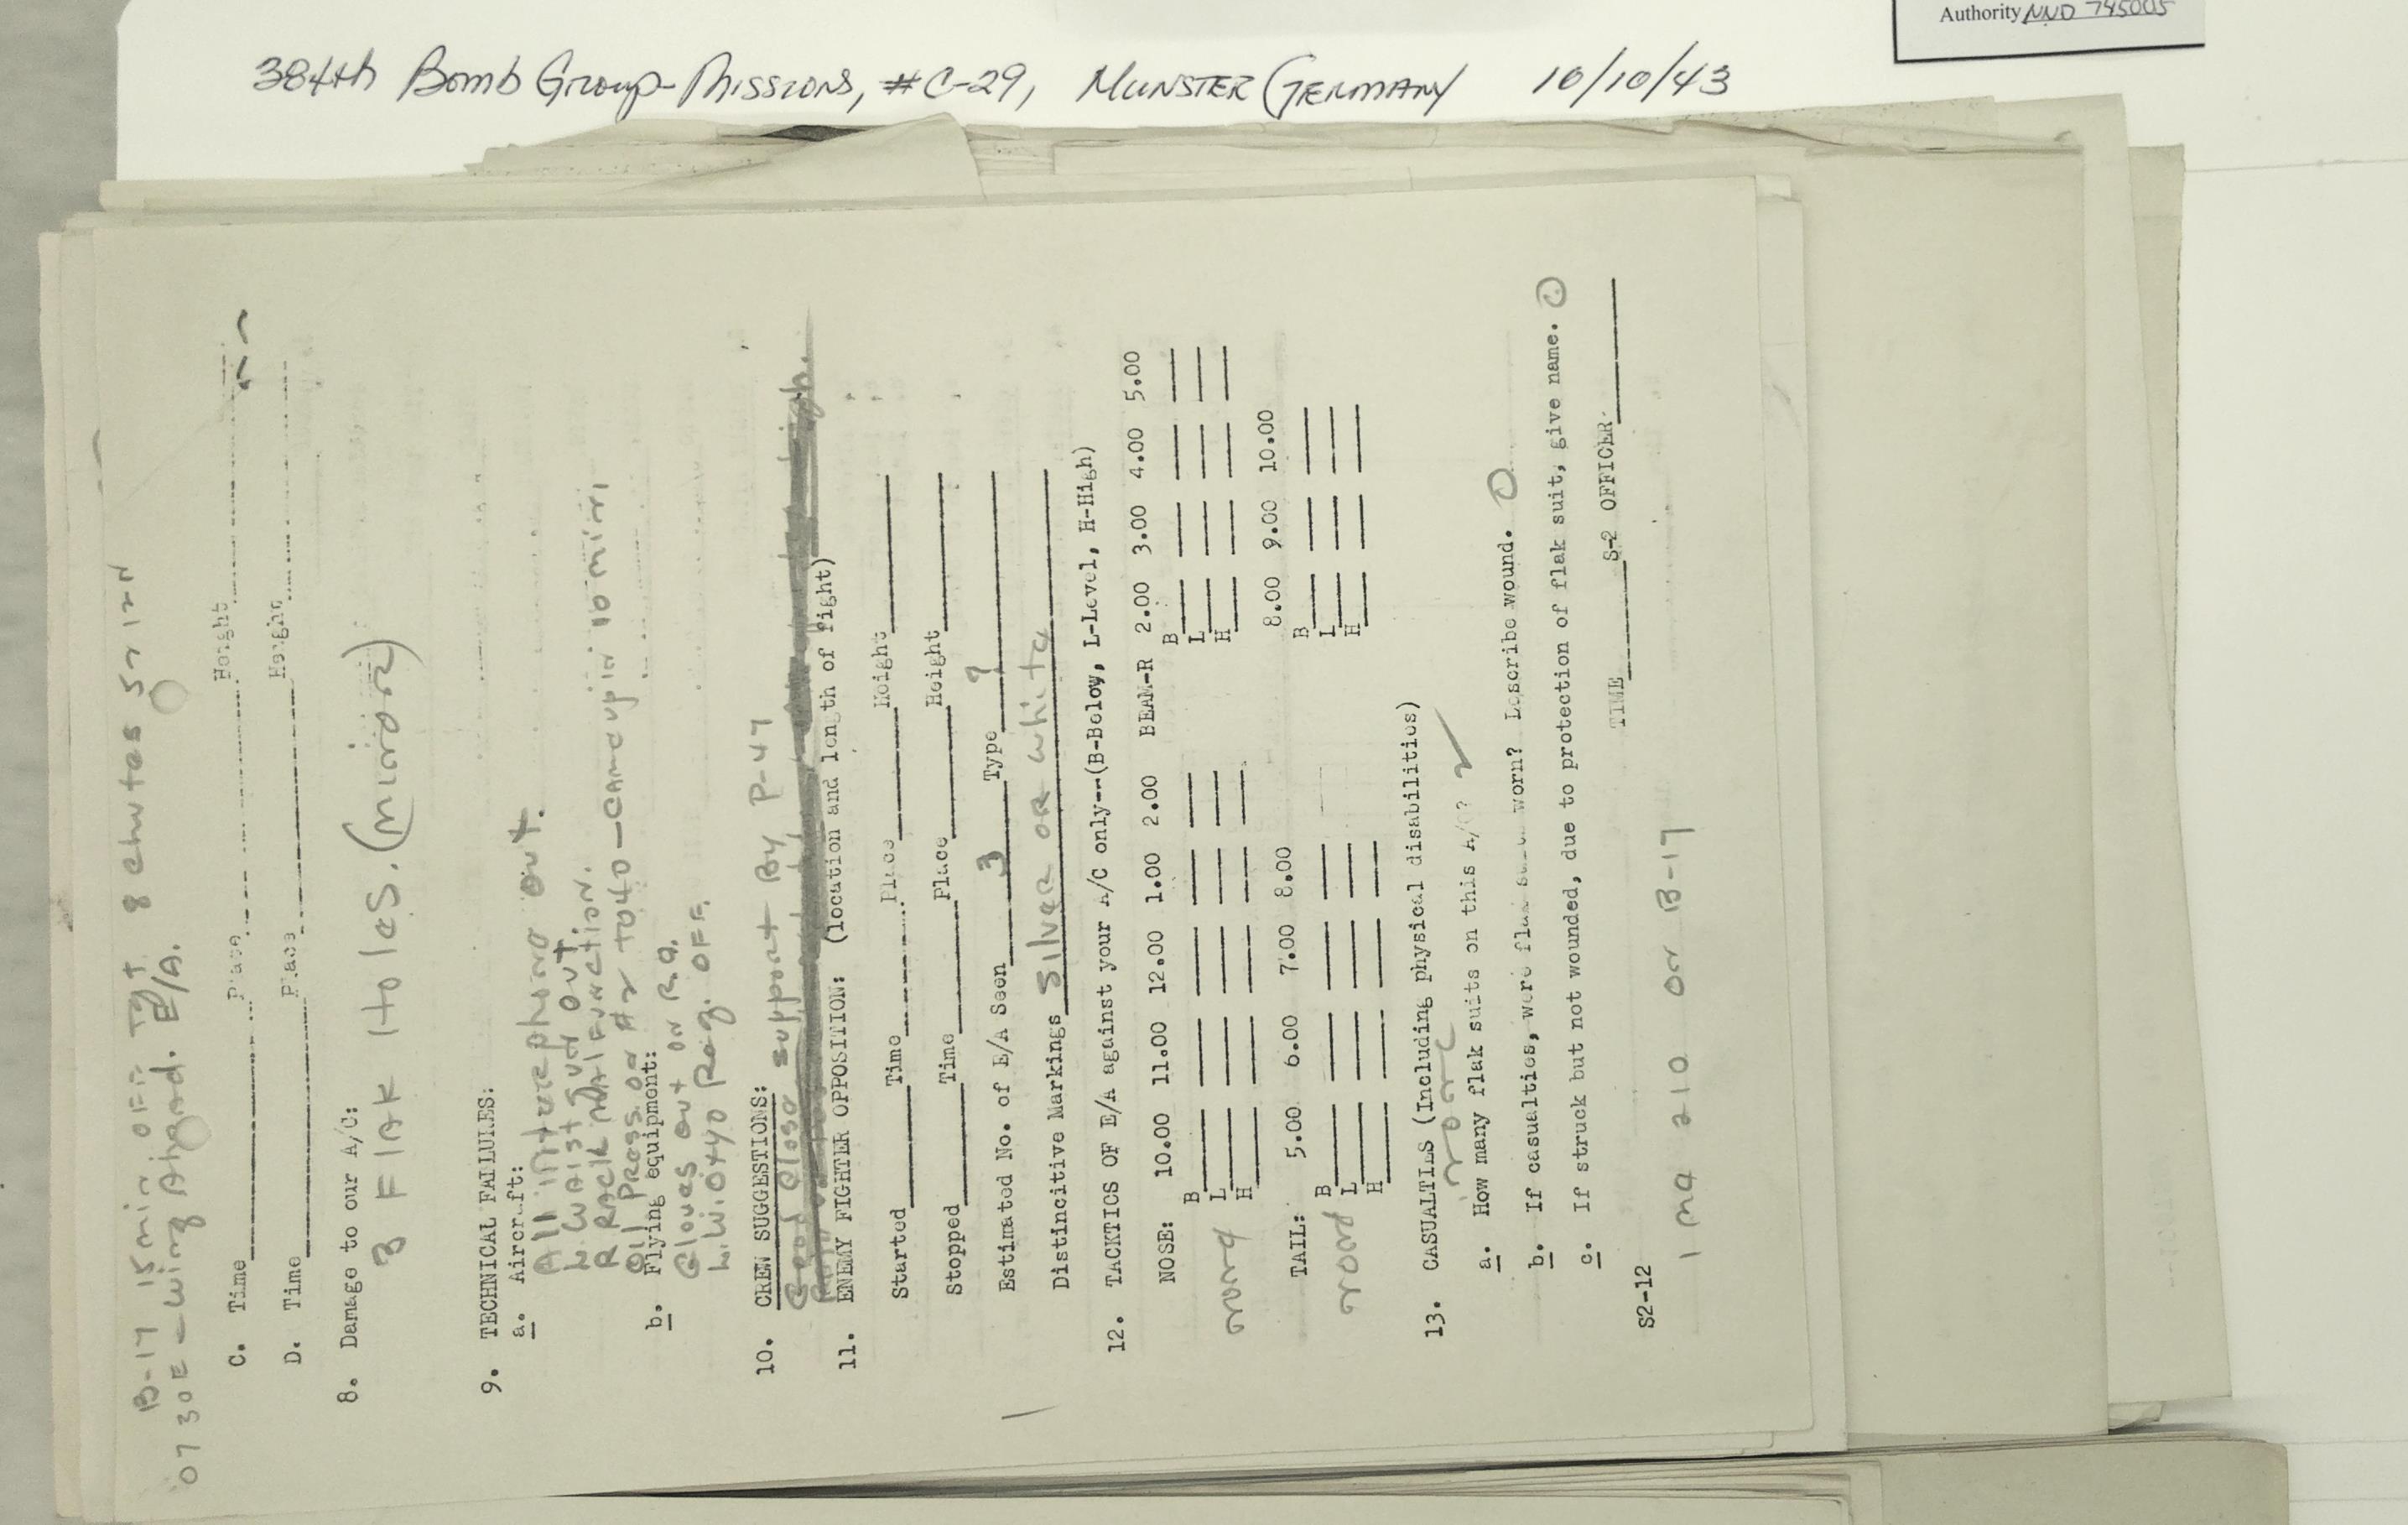 Authority NND 745005
384th Bomb Group-Missions, #C-29, MUNSTER (GERMANY 10/10/43
B-17 15 min OFF Tgt 8 chutes
0730E - Wing Ahead. E/A.
C. Time Place Height
D. Time Place Height
8. Damage to our A/C:
3 FlAK Holes. (minor)
9. TECHNICAL FAILURES:
a. Aircraft:
All interphone out.
L Waist gun out.
R RACK MALFUNCTION.
Oil press. on #2 to 40 - CAme up in 10 min,
b. Flying equipment:
Gloves out on R.O.
L.W. Oxy Reg. OFF.
10. CREW SUGGESTIONS:
Good close support By P-47
11. ENEMY FIGHTER OPPOSITION: (location and length of fight)
Started Time Place Height
Stopped Time Place Height
Estimated No. of E/A Seen 3 Type ?
Distincitive Markings Silver or white
12. TACKTICS OF E/A against your A/C only--(B-Below, L-Level, H-High)
NOSE: 10.00 11.00 12.00 1.00 2.00 BEAM-R 2.00 3.00 4.00 5.00
B B
L L
H H
none
TAIL: 5.00 6.00 7.00 8.00 8.00 9.00 10.00
B B
L L
H H
none
13. CASUALTIES (Including physical disabilities)
none
a. How many flak suits on this A/C? 2
b. If casualties, were flak suits worn? Describe wound. 0
c. If struck but not wounded, due to protection of flak suit, give name. 0
TIME S-2 OFFICER
S2-12
1 me 210 on B-17